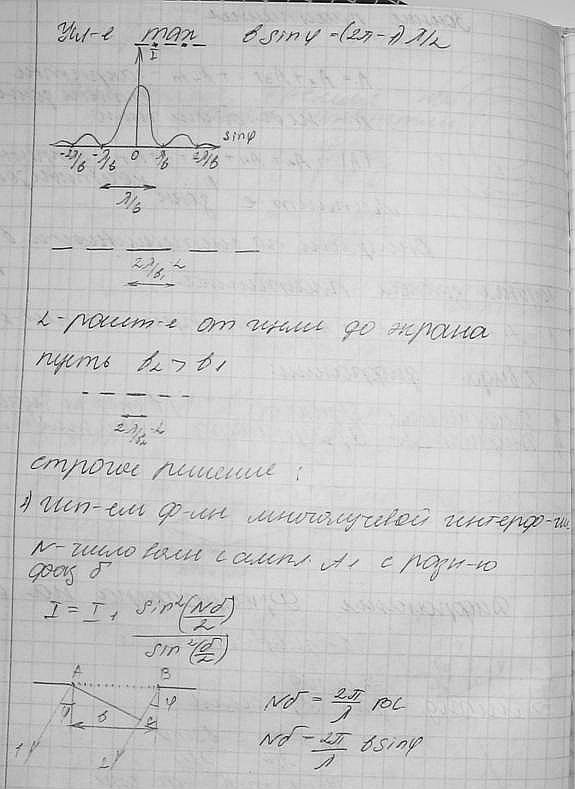 Усл-е max b sinφ = (2n-1) λ/2
I
sinφ
-2λ/b -λ/b 0 λ/b 2λ/b
λ/b
2λ/b₁·L
L-расст-е от щели до экрана
пусть b₂ > b₁
2λ/b₂·L
строгое решение :
1) Исп-ем ф-лы многолучевой интерф-ции
N-число волн с ампл. A₁ с разн-ю
фаз δ
I = I₁ sin²(Nδ/2) / sin²(δ/2)
A B
φ b C φ
1 2
Nδ = 2π/λ BC
Nδ = 2π/λ b sinφ